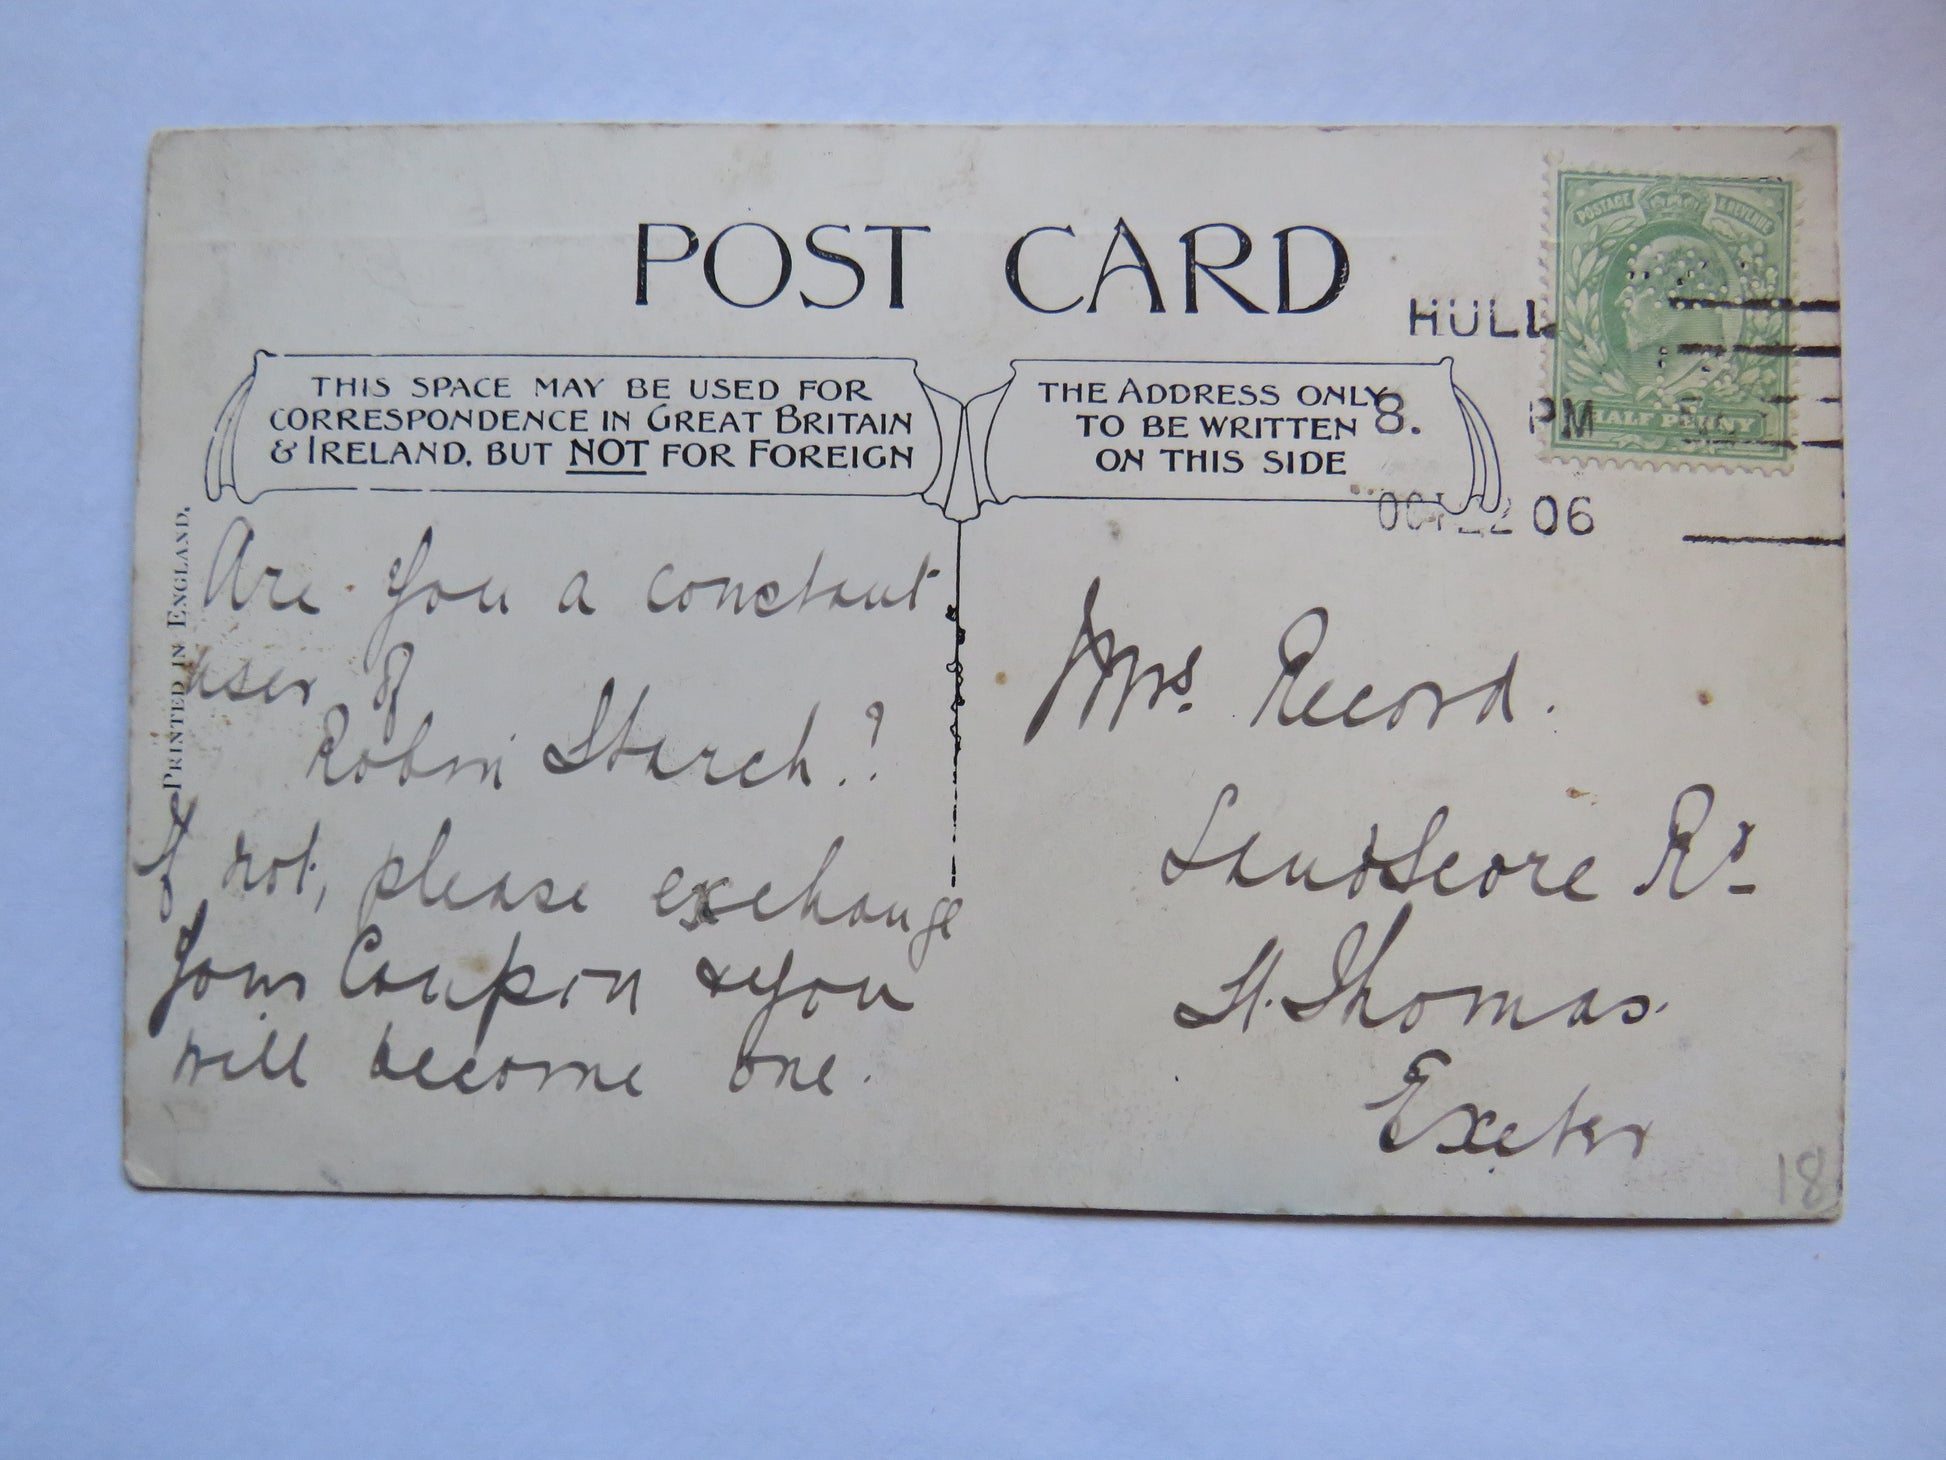 POST CARD
THIS SPACE MAY BE USED FOR
CORRESPONDENCE IN GREAT BRITAIN
& IRELAND, BUT NOT FOR FOREIGN
THE ADDRESS ONLY
TO BE WRITTEN
ON THIS SIDE
POSTAGE & REVENUE
HALF PENNY
HULL
8. PM
OCT 22 06
PRINTED IN ENGLAND.
Are you a constant
user of
Robin Starch.?
If not, please exchange
your Coupon & you
will become one.
Mrs. Record.
Landscore Rd
St. Thomas.
Exeter
18